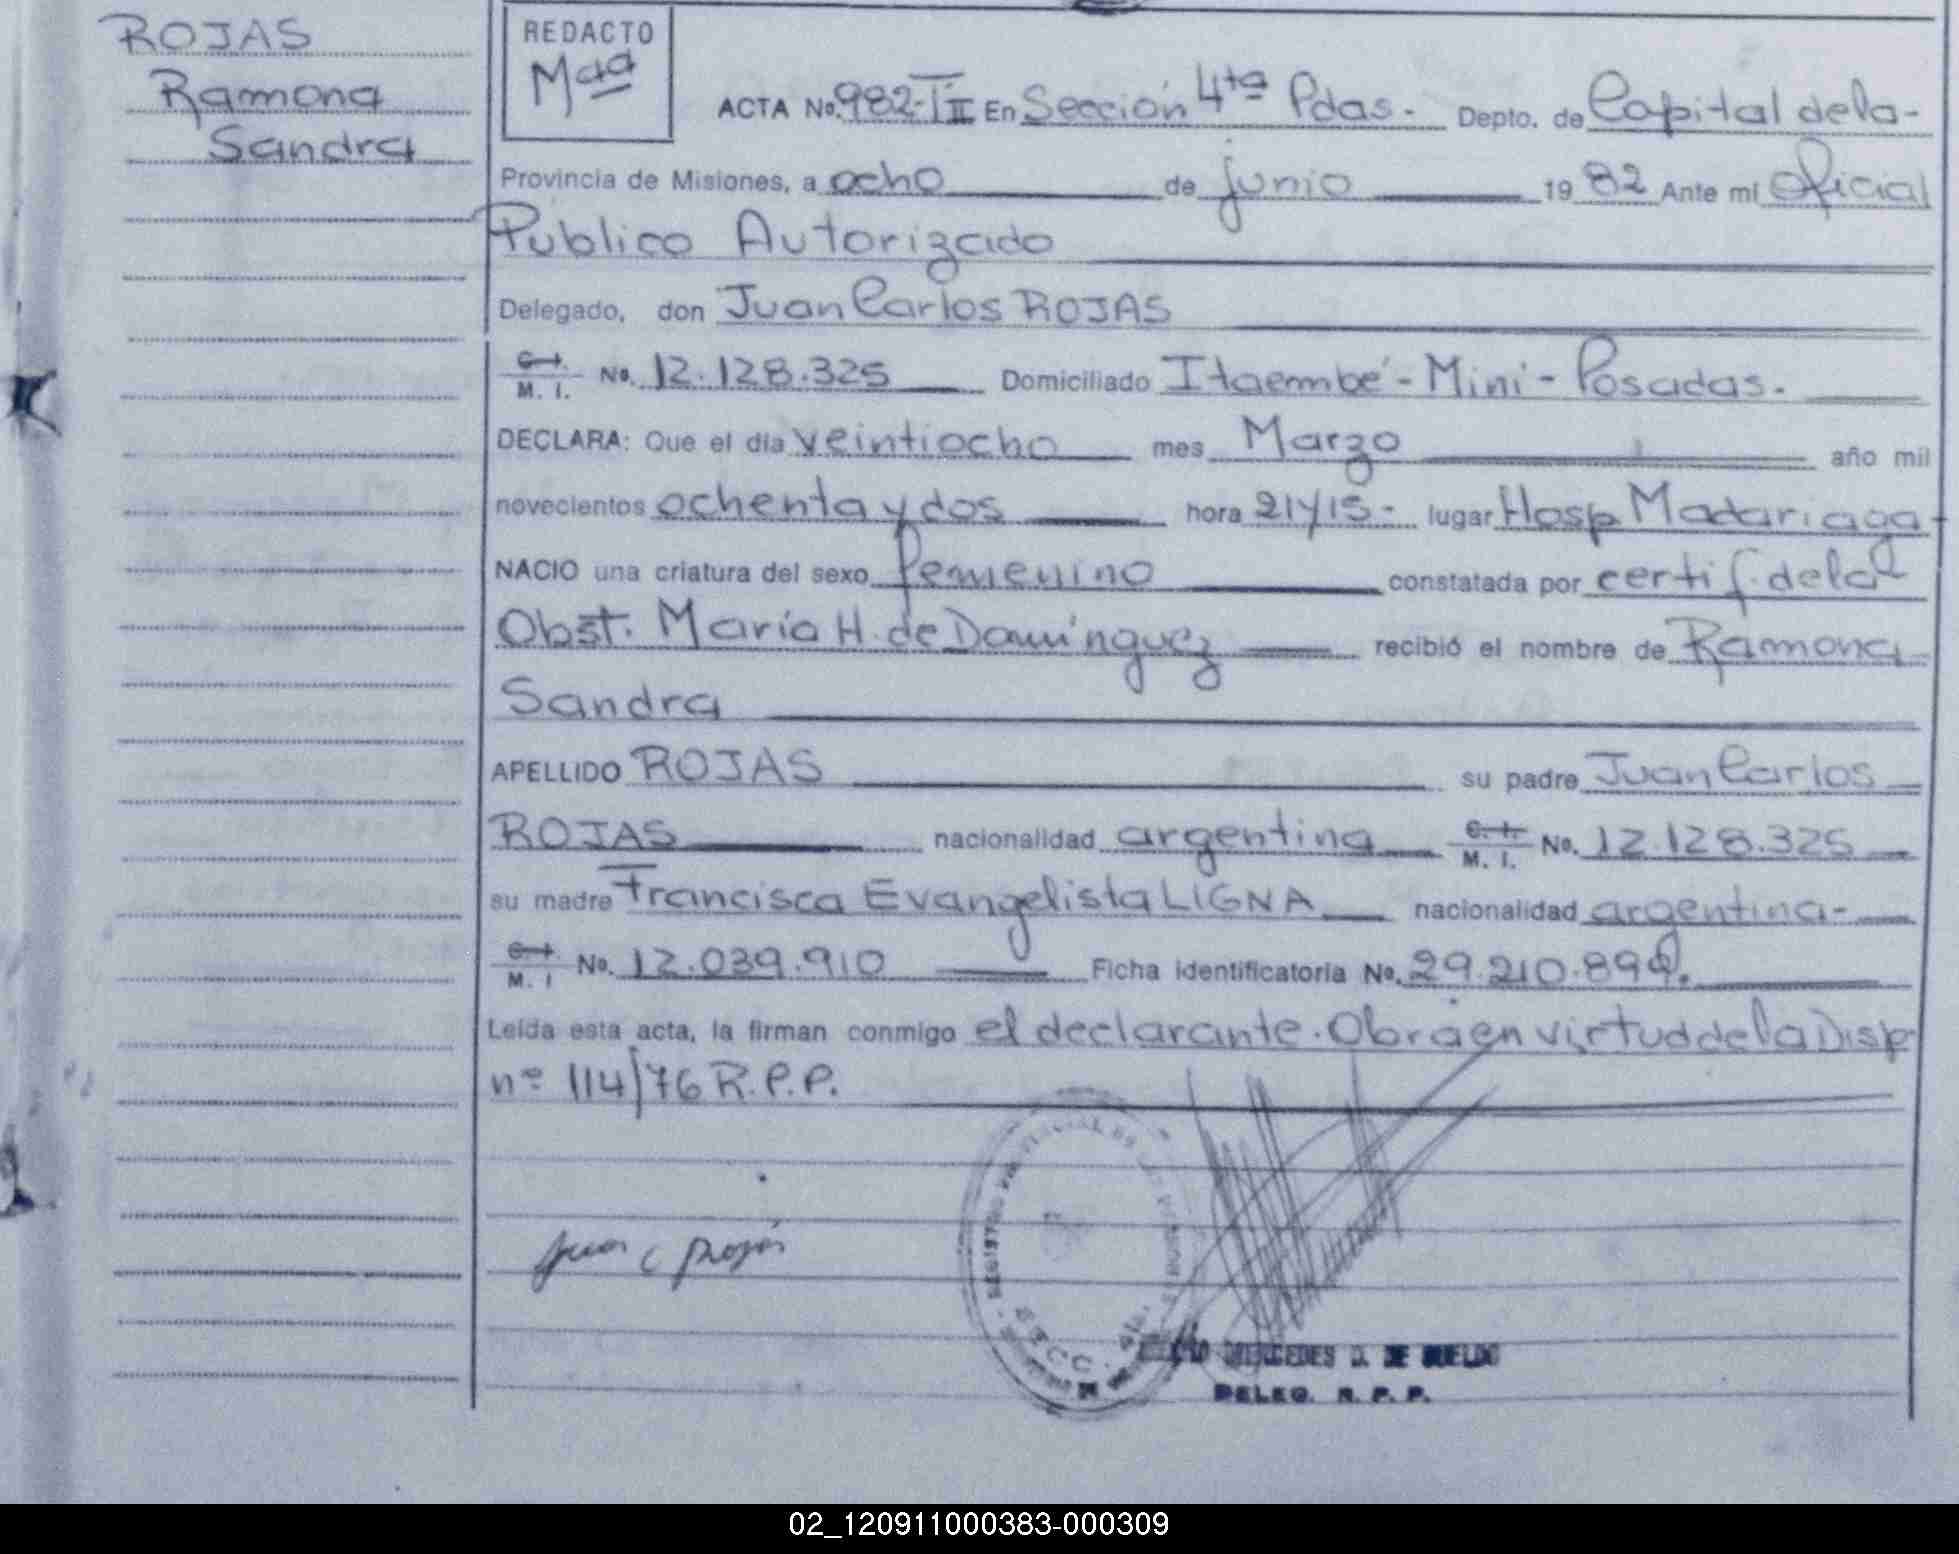 ROJAS
Ramona
Sandra
REDACTO
Mªª
ACTA No. 982-TII En Sección 4ta Pdas.- Depto. de Capital de la-
Provincia de Misiones, a ocho de junio 1982 Ante mí Oficial
Publico Autorizado
Delegado, don Juan Carlos ROJAS
C.I. M. I. No. 12.128.325 Domiciliado Itaembé-Mini-Posadas.
DECLARA: Que el día veintiocho mes Marzo año mil
novecientos ochenta y dos hora 21y15- lugar Hosp Madariaga
NACIO una criatura del sexo femenino constatada por certif. de la
Obst. María H. de Domínguez recibió el nombre de Ramona
Sandra
APELLIDO ROJAS su padre Juan Carlos
ROJAS nacionalidad argentina C.I. M. I. No. 12.128.325
su madre Francisca Evangelista LIGNA nacionalidad argentina-
C.I. M. I No. 12.039.910 Ficha identificatoria No. 29.210.89
Leída esta acta, la firman conmigo el declarante. Obra en virtud de la Disp
nº 114/76 R.P.P.
Juan C Rojas
REGISTRO PROVINCIAL DE LAS PERSONAS
MERCEDES D. DE
DELEG. R. P. P.
02_120911000383-000309